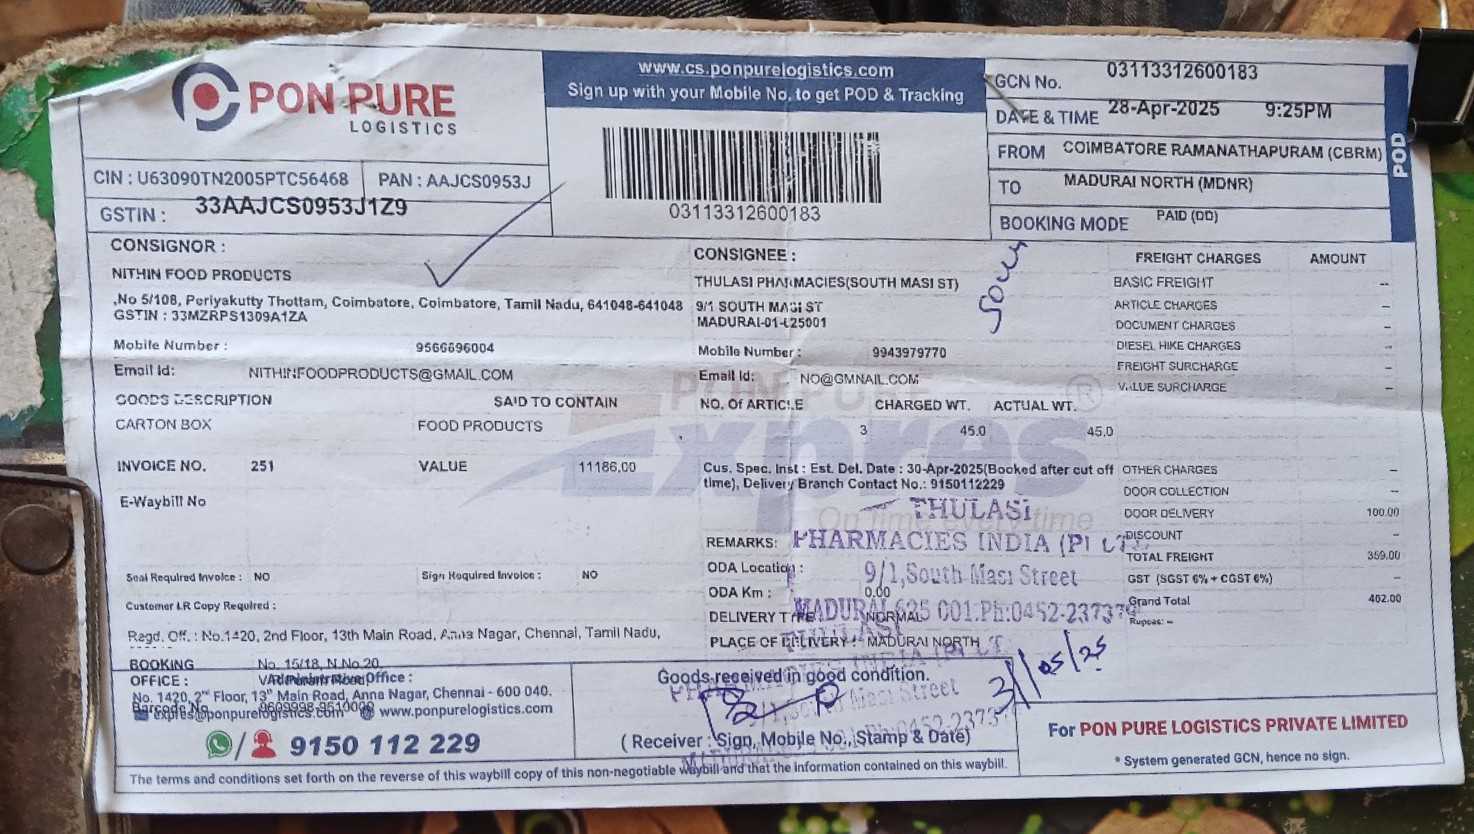 PON PURE
LOGISTICS
www.cs.ponpurelogistics.com
Sign up with your Mobile No. to get POD & Tracking
03113312600183
GCN No. 03113312600183
DATE & TIME 28-Apr-2025 9:25PM
FROM COIMBATORE RAMANATHAPURAM (CBRM)
TO MADURAI NORTH (MDNR)
BOOKING MODE PAID (DD)
POD
CIN : U63090TN2005PTC56468 PAN : AAJCS0953J
GSTIN : 33AAJCS0953J1Z9
CONSIGNOR :
NITHIN FOOD PRODUCTS
,No 5/108, Periyakutty Thottam, Coimbatore, Coimbatore, Tamil Nadu, 641048-641048
GSTIN : 33MZRPS1309A1ZA
Mobile Number : 9566696004
Email Id: NITHINFOODPRODUCTS@GMAIL.COM
GOODS DESCRIPTION SAID TO CONTAIN
CARTON BOX FOOD PRODUCTS
INVOICE NO. 251 VALUE 11186.00
E-Waybill No
Seal Required Invoice : NO Sign Required Invoice : NO
Customer LR Copy Required :
Regd. Off. : No.1420, 2nd Floor, 13th Main Road, Anna Nagar, Chennai, Tamil Nadu,
CONSIGNEE :
THULASI PHARMACIES(SOUTH MASI ST)
9/1 SOUTH MASI ST
MADURAI-01-625001
Mobile Number : 9943979770
Email Id: NO@GMNAIL.COM
NO. Of ARTICLE CHARGED WT. ACTUAL WT.
3 45.0 45.0
PON PURE
Xpres
On time every time
Cus. Spec. Inst : Est. Del. Date : 30-Apr-2025(Booked after cut off
time), Delivery Branch Contact No.: 9150112229
REMARKS:
ODA Location :
ODA Km : 0.00
DELIVERY TYPE NORMAL
PLACE OF DELIVERY : MADURAI NORTH
THULASI
PHARMACIES INDIA (P) LTD.
9/1,South Masi Street
MADURAI 625 001.Ph:0452-23737
FREIGHT CHARGES AMOUNT
BASIC FREIGHT --
ARTICLE CHARGES -
DOCUMENT CHARGES -
DIESEL HIKE CHARGES -
FREIGHT SURCHARGE -
VALUE SURCHARGE -
OTHER CHARGES -
DOOR COLLECTION --
DOOR DELIVERY 100.00
DISCOUNT -
TOTAL FREIGHT 359.00
GST (SGST 6% + CGST 6%) -
Grand Total 402.00
Rupees: --
BOOKING
OFFICE :
No. 15/18, N.No.20,
Administrative Office :
No. 1420, 2nd Floor, 13th Main Road, Anna Nagar, Chennai - 600 040.
Barcode No 9509998-9510000
expres@ponpurelogistics.com www.ponpurelogistics.com
/ 9150 112 229
Goods received in good condition.
THULASI
South Masi Street
3/05/25
( Receiver : Sign, Mobile No., Stamp & Date)
For PON PURE LOGISTICS PRIVATE LIMITED
* System generated GCN, hence no sign.
The terms and conditions set forth on the reverse of this waybill copy of this non-negotiable waybill and that the information contained on this waybill.